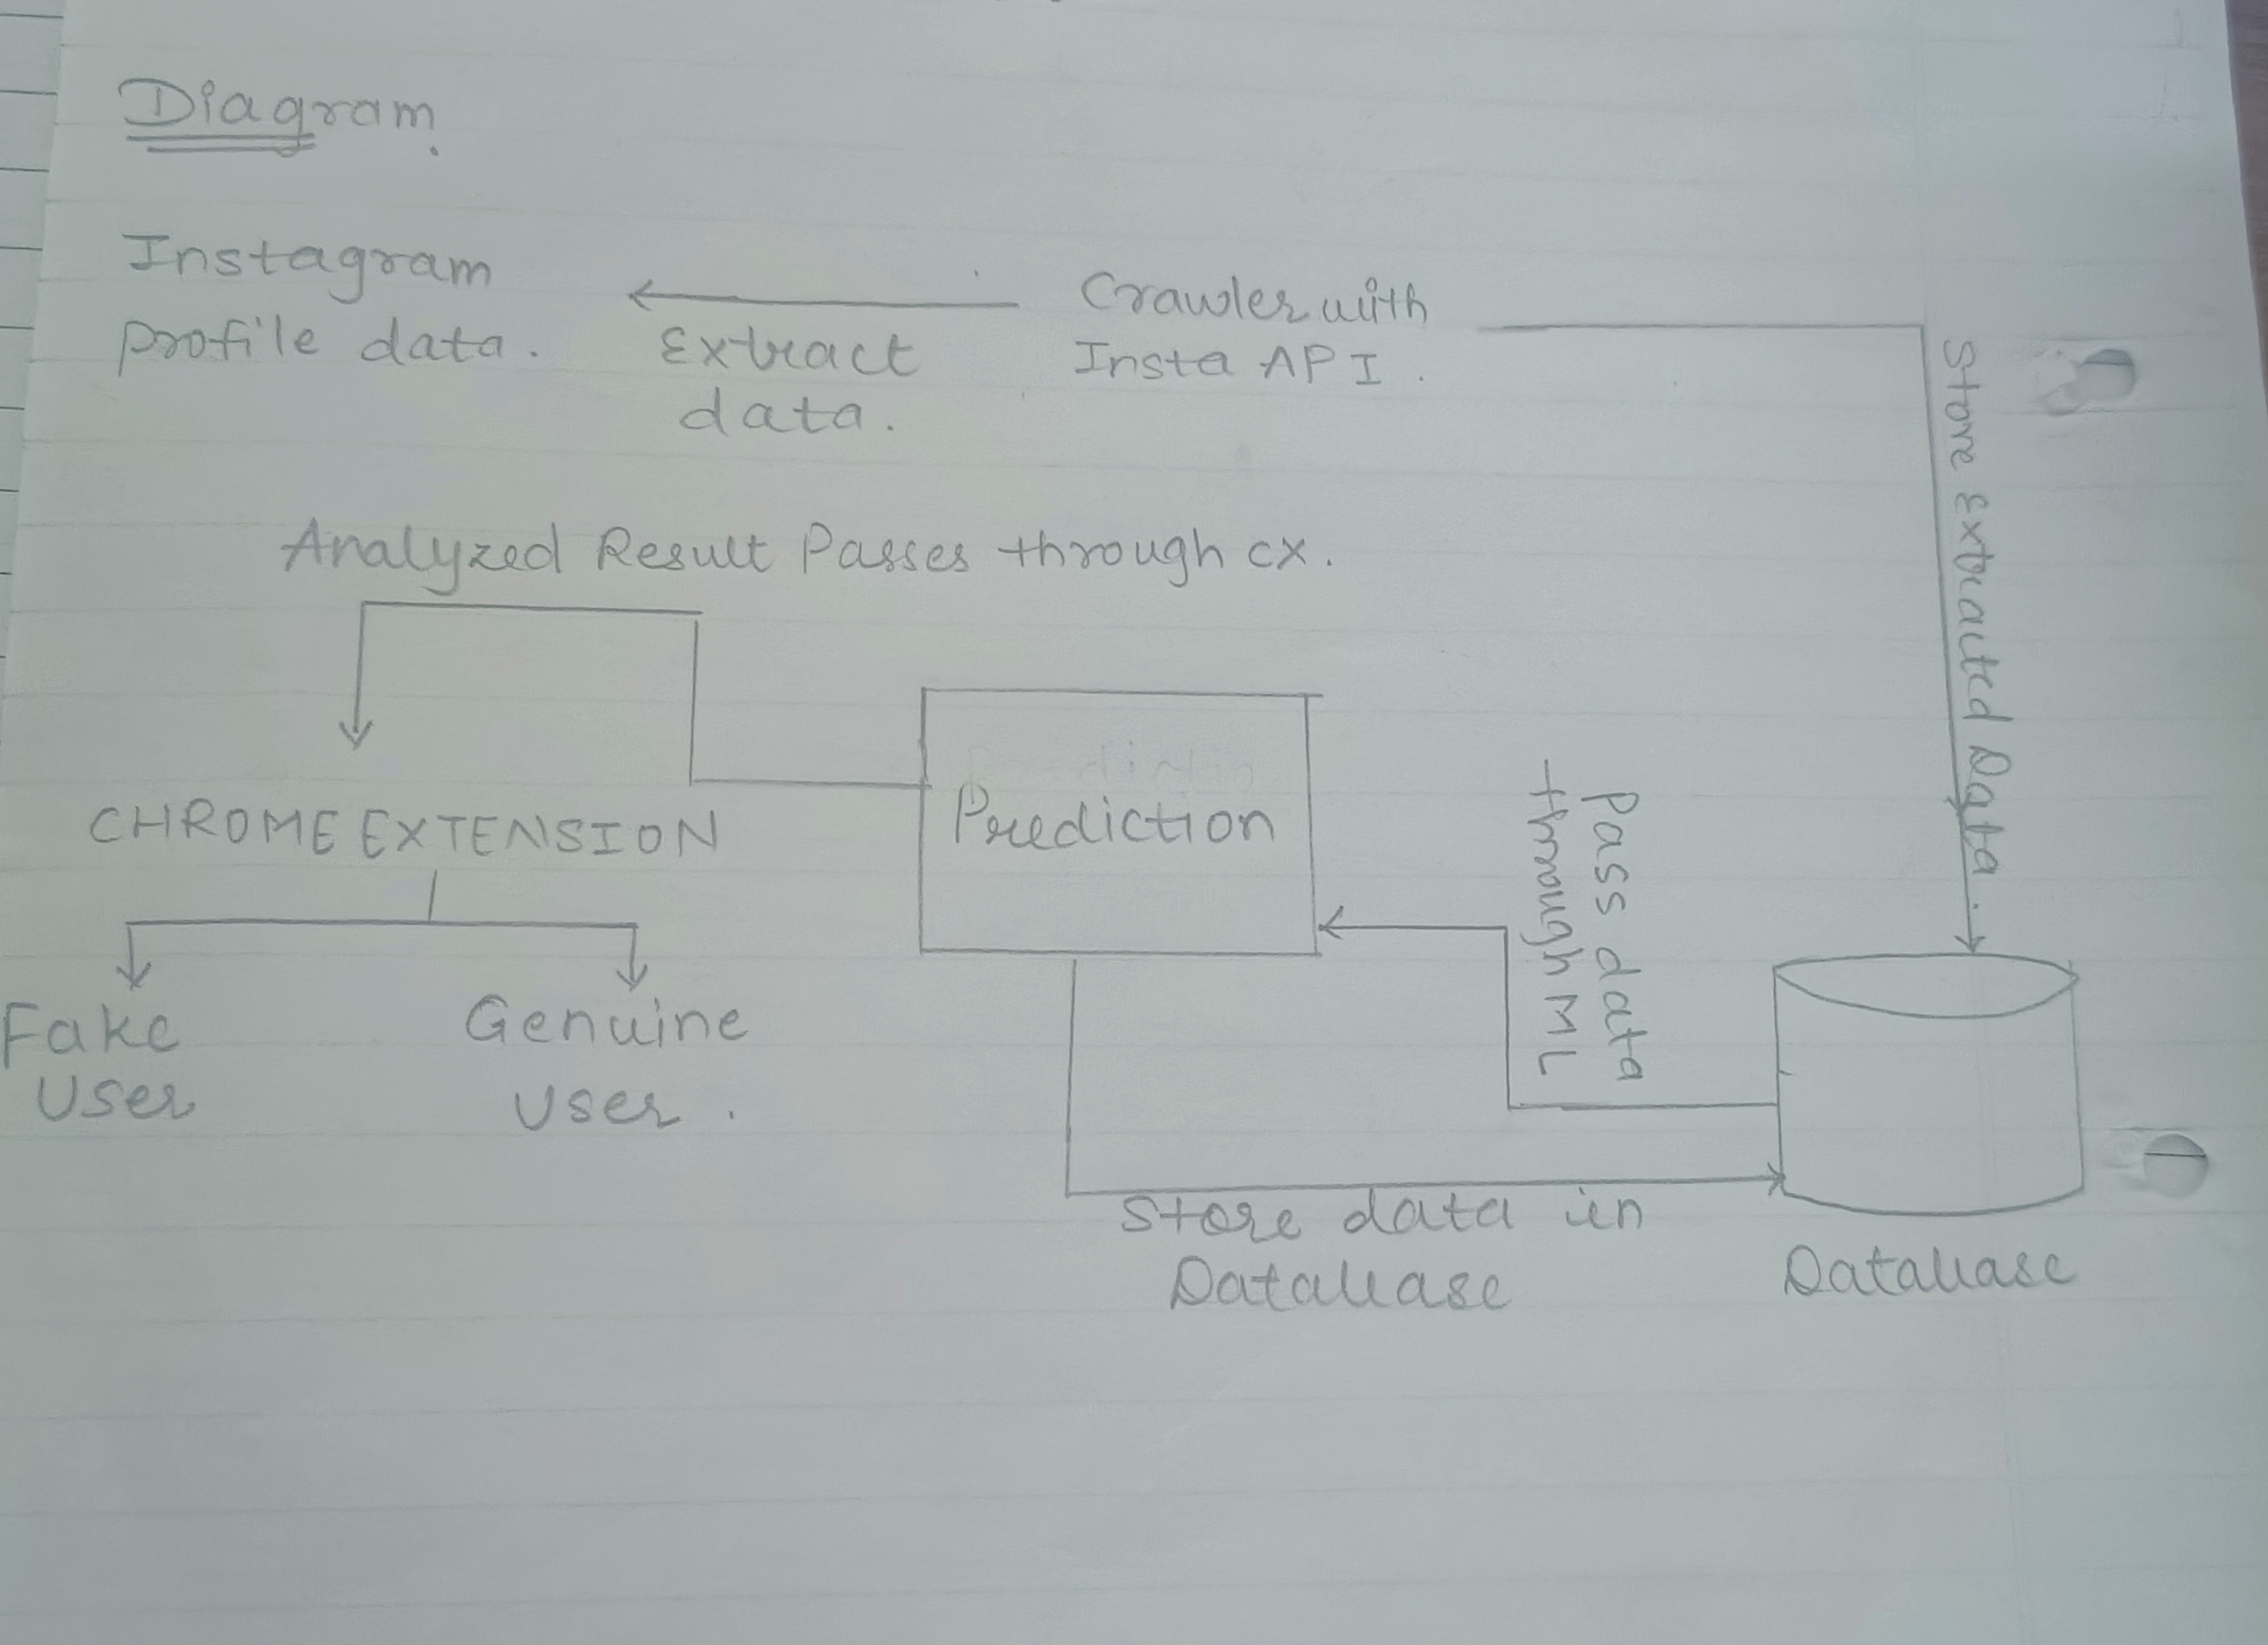 Diagram.
Instagram
profile data.
Extract
data.
Crawler with
Insta API.
Store Extracted Data.
Analyzed Result Passes through cx.
CHROME EXTENSION
Prediction
Pass data
through ML
Fake
User
Genuine
User.
Store data in
Database
Database